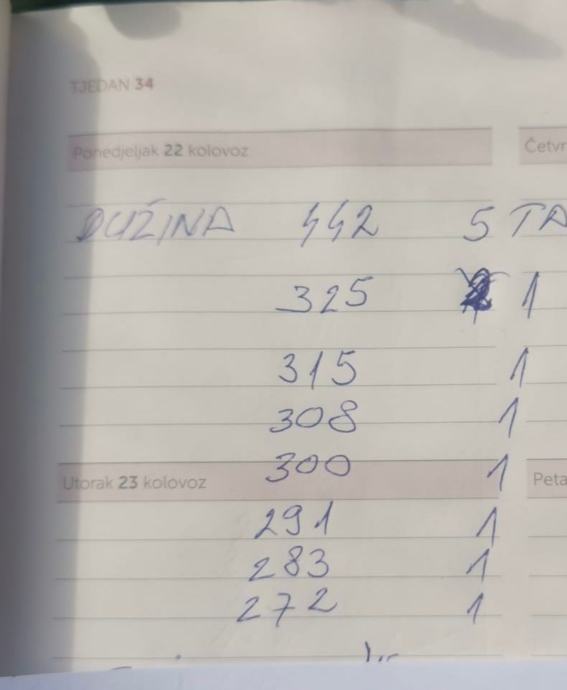 TJEDAN 34
Ponedjeljak 22 kolovoz
DUŽINA 442 5 TA
325 1
315 1
308 1
300 1
Utorak 23 kolovoz
291 1
283 1
272 1